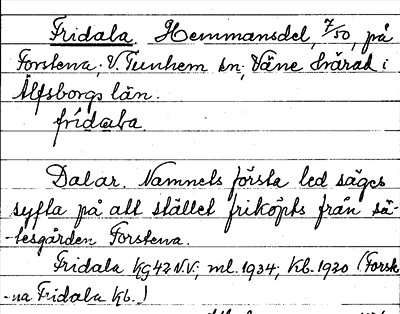 Fridala. Hemmansdel, 7/50, på
Forstena, V. Tunhem sn, Väne härad i
Älfsborgs län.
frídala.
Dalar. Namnets första led säges
syfta på att stället friköpts från sä-
-tesgården Forstena.
Fridala Kg 42 N.V; ml. 1934; Kb. 1920 (Forste-
-na Fridala Kb.)